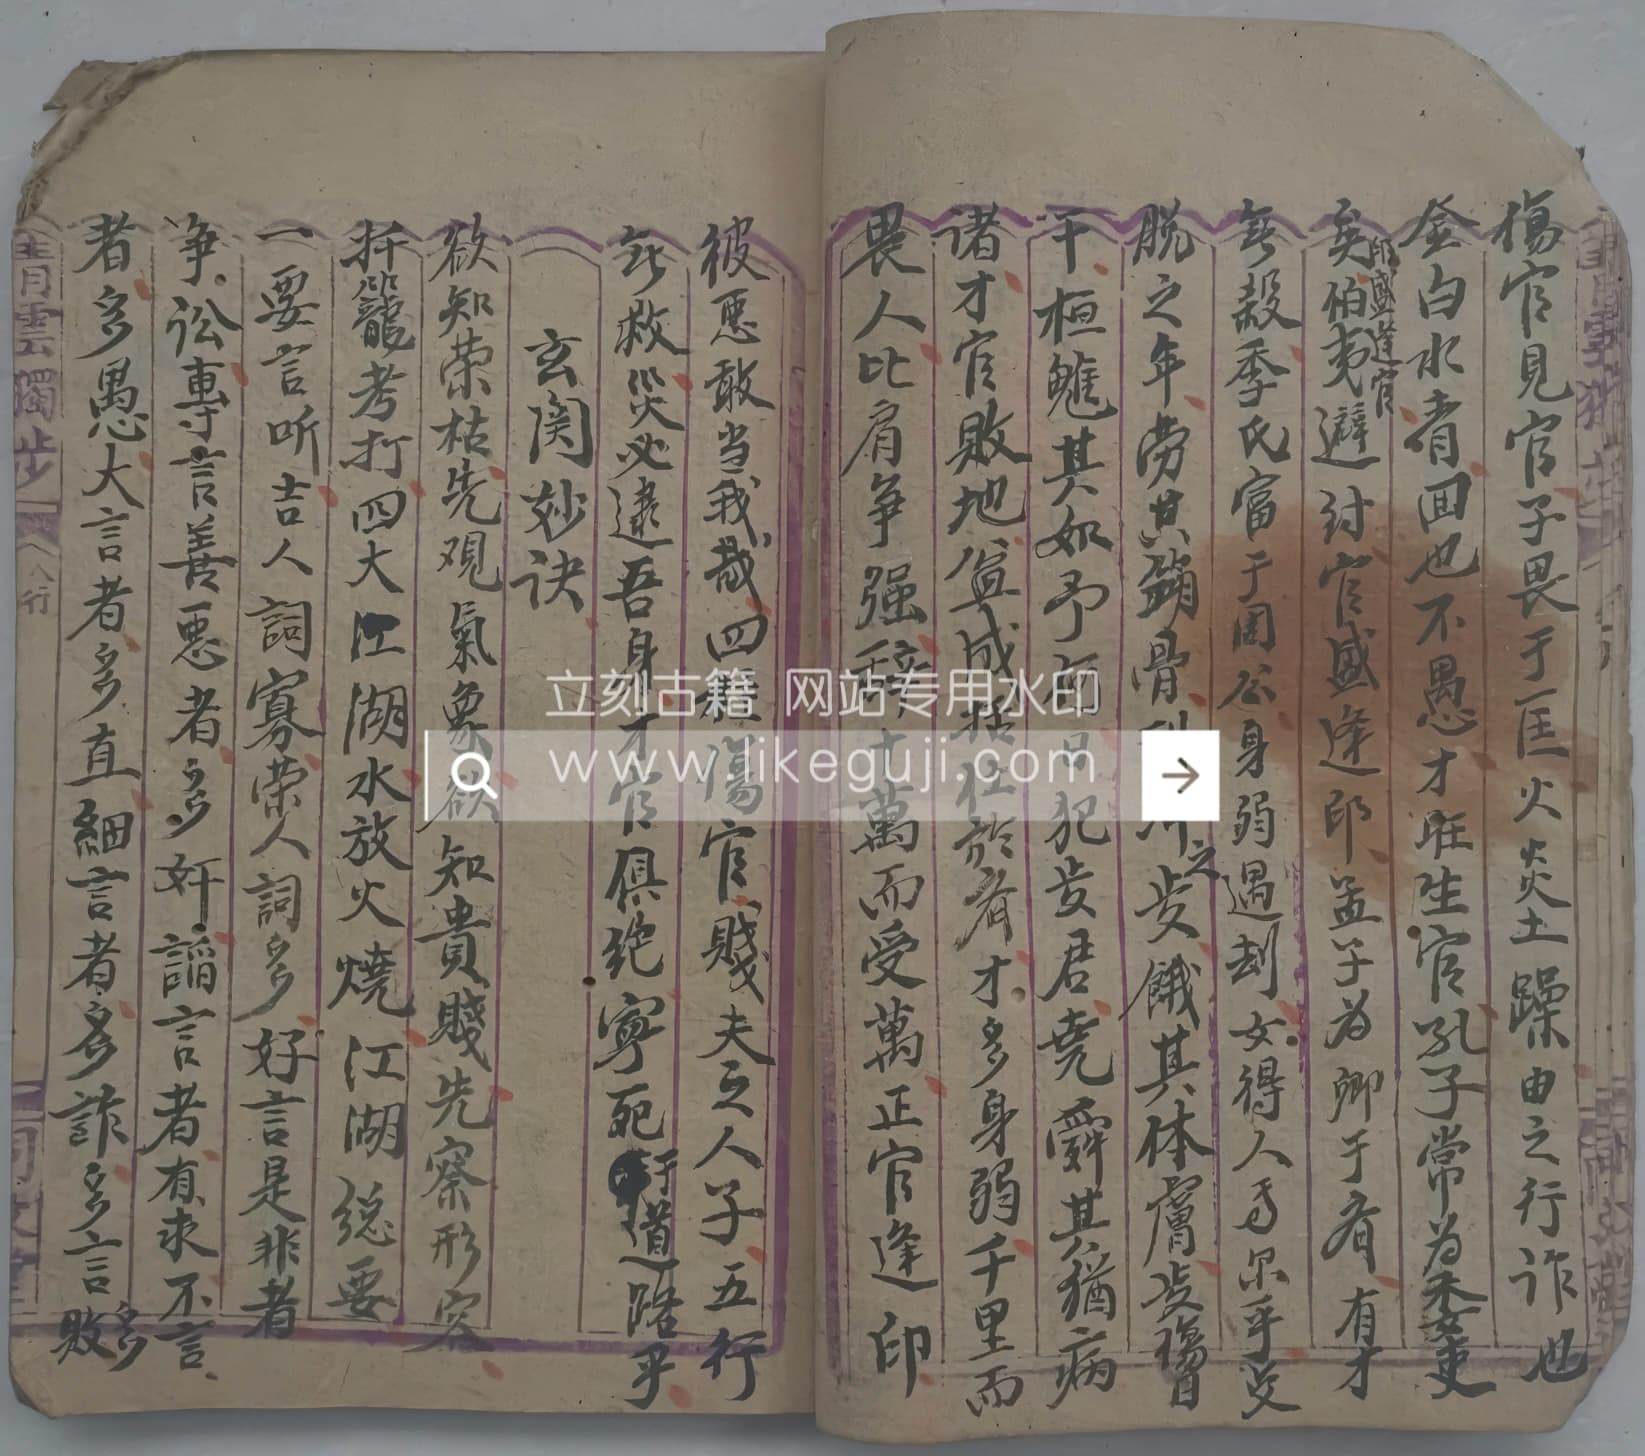 傷官見官子畏于匡火炎土躁由之行诈也
金白水者回也不愚才旺生官孔子常为委吏
矣伯夷避纣官盛逢印孟子为卿于齊有才
印盛逢官
無穀季氏富于周公身弱遇刦女得人焉尔乎受
脱之年劳其筋骨刑冲之歲餓其体膚歲傷日
干桓魋其如予何日犯歲君堯舜其猶病
诸才官敗地盆成括仕於齊才多身弱千里而
畏人比肩争强辞十萬而受萬正官逢印
彼恶敢当我哉四柱傷官賤丈夫之人子五行
無救災必逮吾身才官俱绝寧死于道路乎
玄関妙诀
欲知荣枯先观氣象欲知貴賤先察形容
扦龍考打四大江湖水放火燒江湖総要
一要言听吉人詞寡荣人詞多好言是非者
争讼專言善恶者多奸謟言者有求不言
者多愚大言者多直細言者多詐多言多敗
青雲獨步
八行
立刻古籍 网站专用水印
www.likeguji.com